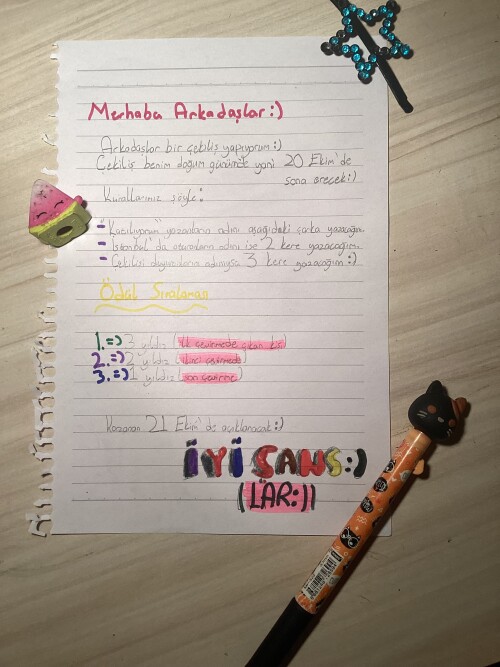 Merhaba Arkadaşlar:)
Arkadaşlar bir çekiliş yapıyorum:)
Çekiliş benim doğum günümde yani 20 Ekim'de
sona erecek:)
Kurallarımız şöyle:
- "Katılıyorum" yazanların adını aşağıdaki çarka yazacağım.
- İstanbul'da oturanların adını ise 2 kere yazacağım.
- Çekilişi duyuranların adınıysa 3 kere yazacağım:)
Ödül Sıralaması
1.=) 3 yıldız (İlk çevirmede çıkan kişi)
2.=) 2 yıldız (İkinci çevirmede)
3.=) 1 yıldız (Son çevirme)
Kazanan 21 Ekim'de açıklanacak:)
İYİ ŞANS:)
(LAR:))